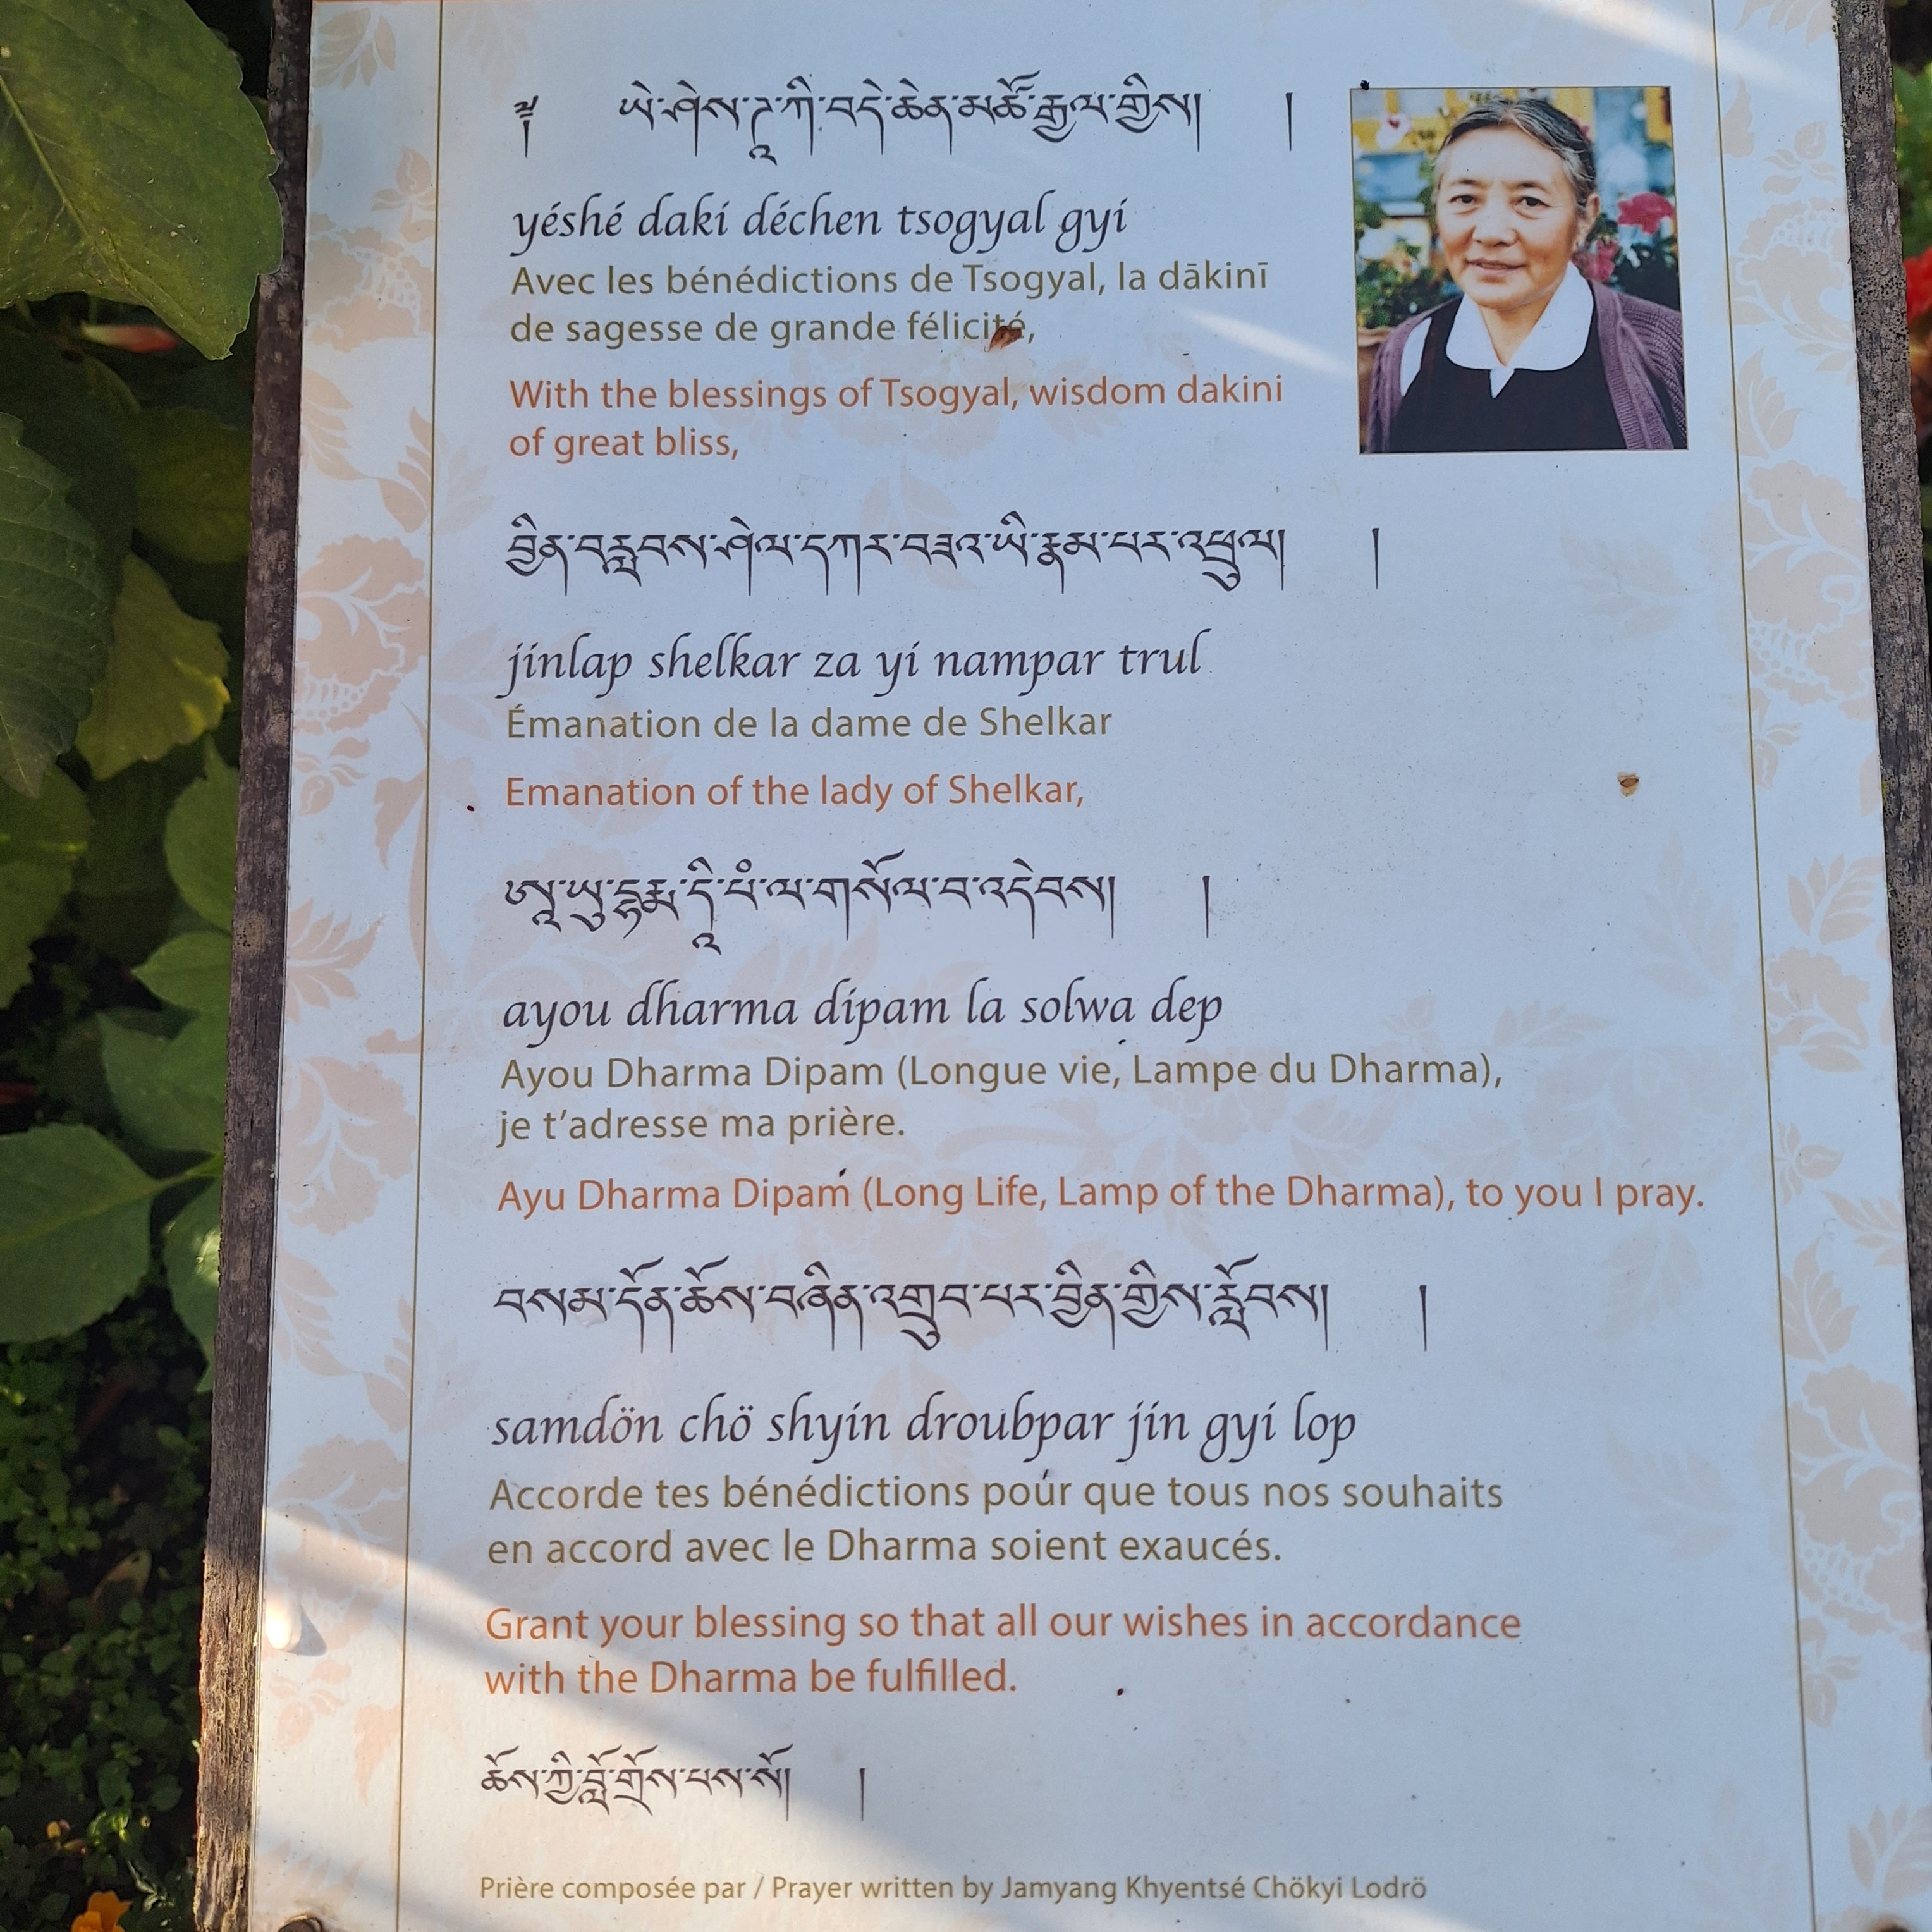 ༄། ཡེ་ཤེས་ཌཱ་ཀི་བདེ་ཆེན་མཚོ་རྒྱལ་གྱིས། །
yéshé daki déchen tsogyal gyi
Avec les bénédictions de Tsogyal, la dākinī
de sagesse de grande félicité,
With the blessings of Tsogyal, wisdom dakini
of great bliss,
བྱིན་བརླབས་ཤེལ་དཀར་བཟའ་ཡི་རྣམ་པར་འཕྲུལ། །
jinlap shelkar za yi nampar trul
Émanation de la dame de Shelkar
Emanation of the lady of Shelkar,
ཨཱ་ཡུ་དྷརྨ་དཱི་པཾ་ལ་གསོལ་བ་འདེབས། །
ayou dharma dipam la solwa dep
Ayou Dharma Dipam (Longue vie, Lampe du Dharma),
je t’adresse ma prière.
Ayu Dharma Dipam (Long Life, Lamp of the Dharma), to you I pray.
བསམ་དོན་ཆོས་བཞིན་འགྲུབ་པར་བྱིན་གྱིས་རློབས། །
samdön chö shyin droubpar jin gyi lop
Accorde tes bénédictions pour que tous nos souhaits
en accord avec le Dharma soient exaucés.
Grant your blessing so that all our wishes in accordance
with the Dharma be fulfilled.
ཆོས་ཀྱི་བློ་གྲོས་པས་སོ། །
Prière composée par / Prayer written by Jamyang Khyentsé Chökyi Lodrö